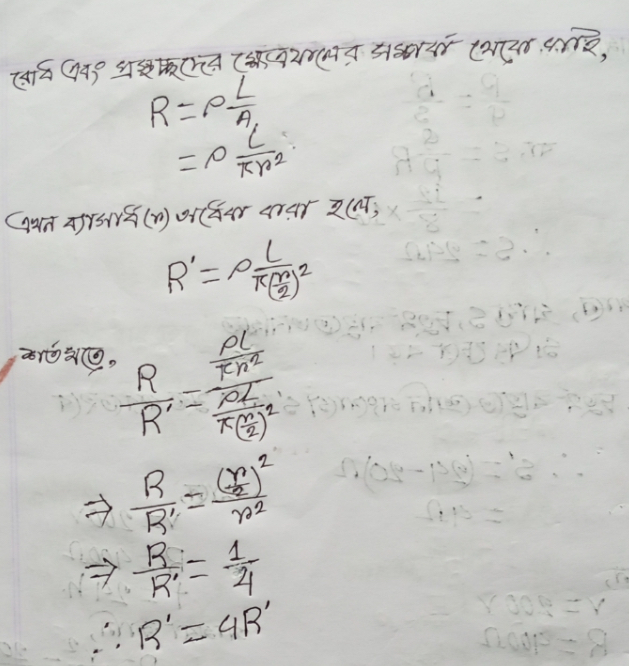 রোধ এবং প্রস্থচ্ছেদের ক্ষেত্রফলের সম্পর্ক থেকে পাই,
R = ρ L/A
= ρ L/πr²
এখন ব্যাসার্ধ (r) অর্ধেক করা হলে,
R' = ρ L/π(r/2)²
শর্তমতে,
R/R' = (ρL/πr²)/(ρL/π(r/2)²)
⇒ R/R' = (r/2)²/r²
⇒ R/R' = 1/4
∴ R' = 4R'